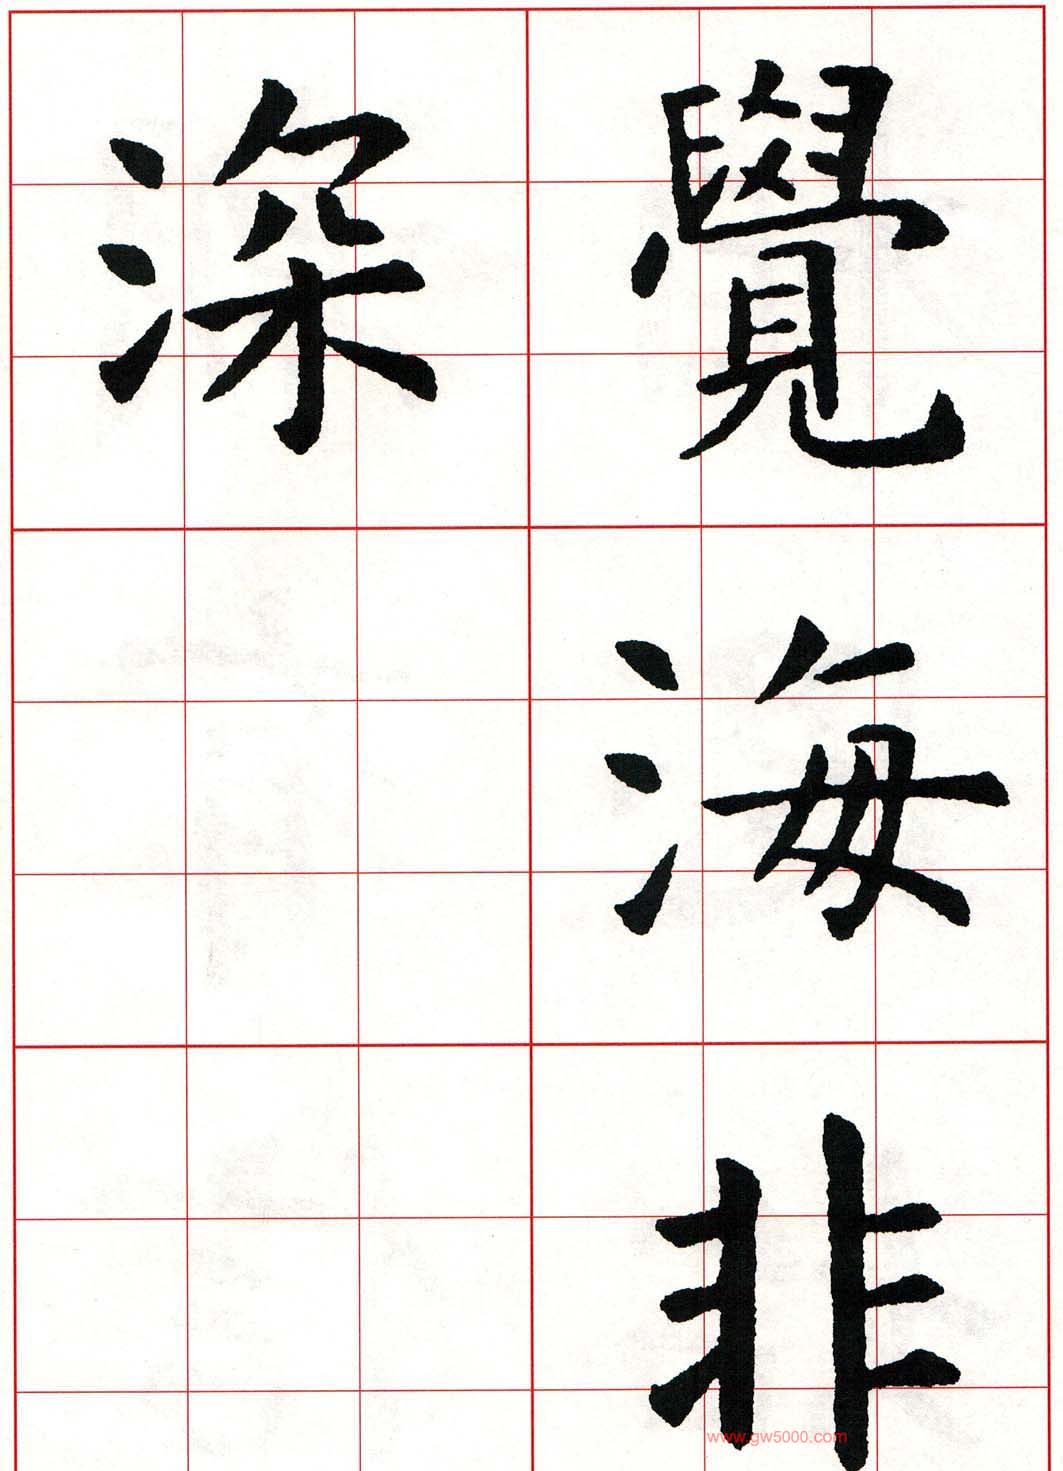 覺海非
深
www.gw5000.com